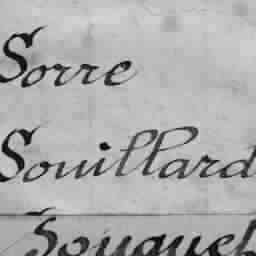 Sorre
Souillard
Souquet